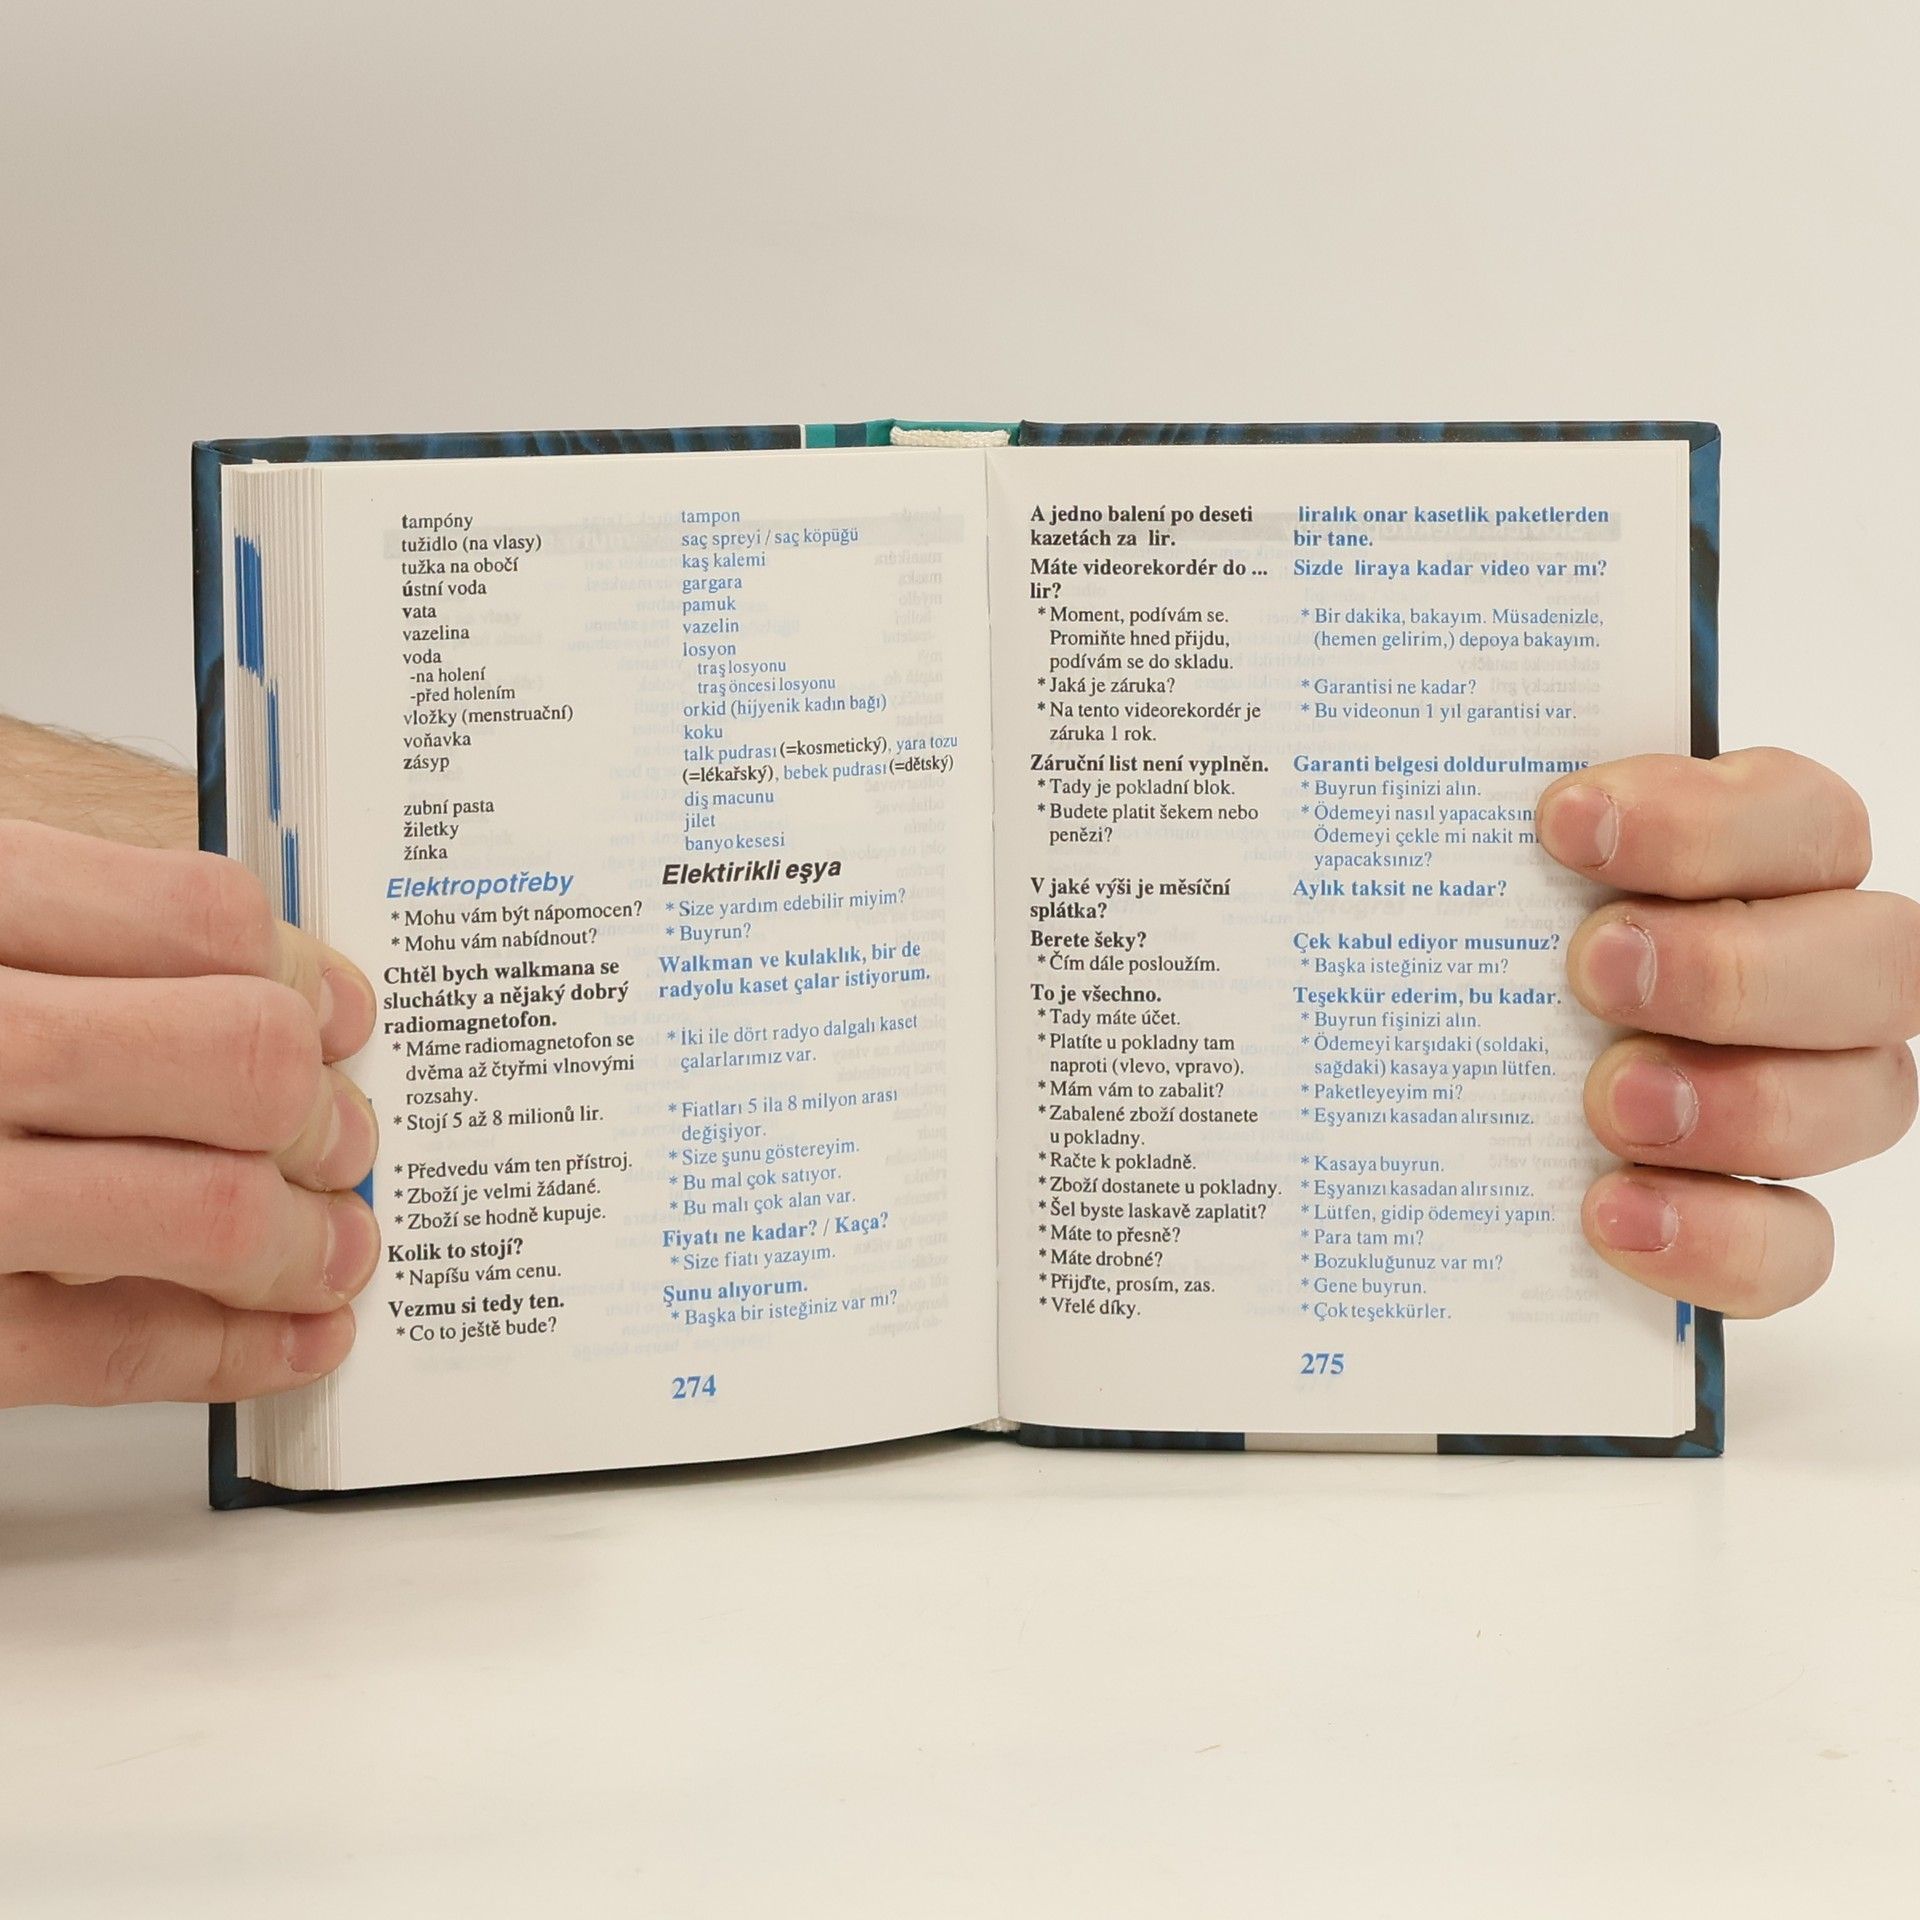 tampóny
tužidlo (na vlasy)
tužka na obočí
ústní voda
vata
vazelina
voda
-na holení
-před holením
vložky (menstruační)
voňavka
zásyp
zubní pasta
žiletky
žínka
tampon
saç spreyi / saç köpüğü
kaş kalemi
gargara
pamuk
vazelin
losyon
traş losyonu
traş öncesi losyonu
orkid (hijyenik kadın bağı)
koku
talk pudrası (=kosmetický), yara tozu
(=lékařský), bebek pudrası (=dětský)
diş macunu
jilet
banyo kesesi
Elektropotřeby
* Mohu vám být nápomocen?
* Mohu vám nabídnout?
Chtěl bych walkmana se
sluchátky a nějaký dobrý
radiomagnetofon.
* Máme radiomagnetofon se
dvěma až čtyřmi vlnovými
rozsahy.
* Stojí 5 až 8 milionů lir.
* Předvedu vám ten přístroj.
* Zboží je velmi žádané.
* Zboží se hodně kupuje.
Kolik to stojí?
* Napíšu vám cenu.
Vezmu si tedy ten.
* Co to ještě bude?
Elektirikli eşya
* Size yardım edebilir miyim?
* Buyrun?
Walkman ve kulaklık, bir de
radyolu kaset çalar istiyorum.
* İki ile dört radyo dalgalı kaset
çalarlarımız var.
* Fiatları 5 ila 8 milyon arası
değişiyor.
* Size şunu göstereyim.
* Bu mal çok satıyor.
* Bu malı çok alan var.
Fiyatı ne kadar? / Kaça?
* Size fiatı yazayım.
Şunu alıyorum.
* Başka bir isteğiniz var mı?
274
A jedno balení po deseti
kazetách za lir.
Máte videorekordér do ...
lir?
* Moment, podívám se.
Promiňte hned přijdu,
podívám se do skladu.
* Jaká je záruka?
* Na tento videorekordér je
záruka 1 rok.
Záruční list není vyplněn.
* Tady je pokladní blok.
* Budete platit šekem nebo
penězi?
V jaké výši je měsíční
splátka?
Berete šeky?
* Čím dále posloužím.
To je všechno.
* Tady máte účet.
* Platíte u pokladny tam
naproti (vlevo, vpravo).
* Mám vám to zabalit?
* Zabalené zboží dostanete
u pokladny.
* Račte k pokladně.
* Zboží dostanete u pokladny.
* Šel byste laskavě zaplatit?
* Máte to přesně?
* Máte drobné?
* Přijďte, prosím, zas.
* Vřelé díky.
liralık onar kasetlik paketlerden
bir tane.
Sizde liraya kadar video var mı?
* Bir dakika, bakayım. Müsadenizle,
(hemen gelirim,) depoya bakayım.
* Garantisi ne kadar?
* Bu videonun 1 yıl garantisi var.
Garanti belgesi
* Buyrun fişinizi alın.
* Ödemeyi nasıl
Ödemeyi çekle mi nakit
yapacaksınız?
Aylık taksit ne kadar?
Çek kabul ediyor musunuz?
* Başka isteğiniz var mı?
Teşekkür ederim, bu kadar.
* Buyrun fişinizi alın.
* Ödemeyi karşıdaki (soldaki,
sağdaki) kasaya yapın lütfen.
* Paketleyeyim mi?
* Eşyanızı kasadan alırsınız.
* Kasaya buyrun.
* Eşyanızı kasadan alırsınız.
* Lütfen, gidip ödemeyi yapın.
* Para tam mı?
* Bozukluğunuz var mı?
* Gene buyrun.
* Çok teşekkürler.
275